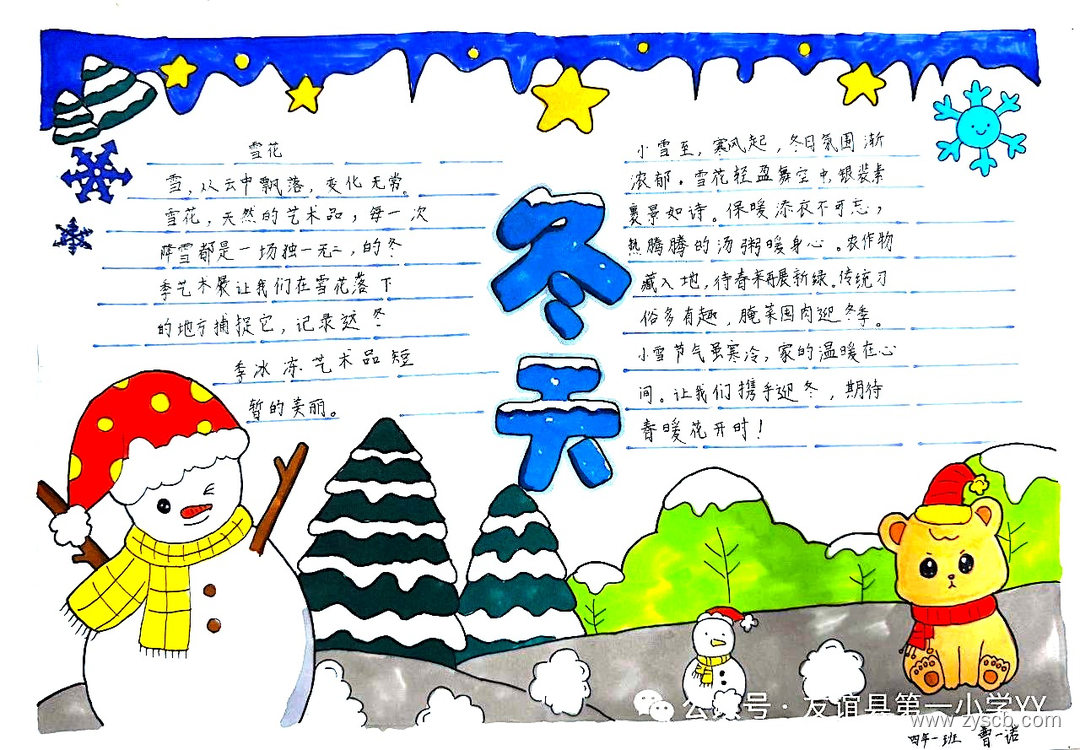 雪花
雪，从云中飘落，变化无常。
雪花，天然的艺术品，每一次
降雪都是一场独一无二，的冬
季艺术展让我们在雪花落下
的地方捕捉它，记录这冬
季冰冻艺术品短
暂的美丽。
冬
天
小雪至，寒风起，冬日氛围渐
浓郁。雪花轻盈舞空中，银装素
裹景如诗。保暖添衣不可忘，
热腾腾的汤粥暖身心。农作物
藏入地，待春来再展新绿。传统习
俗多有趣，腌菜囤肉迎冬季。
小雪节气虽寒冷，家的温暖在心
间。让我们携手迎冬，期待
春暖花开时！
公众号·友谊县第一小学YY
www.zyscb.com
四年一班 曹一诺